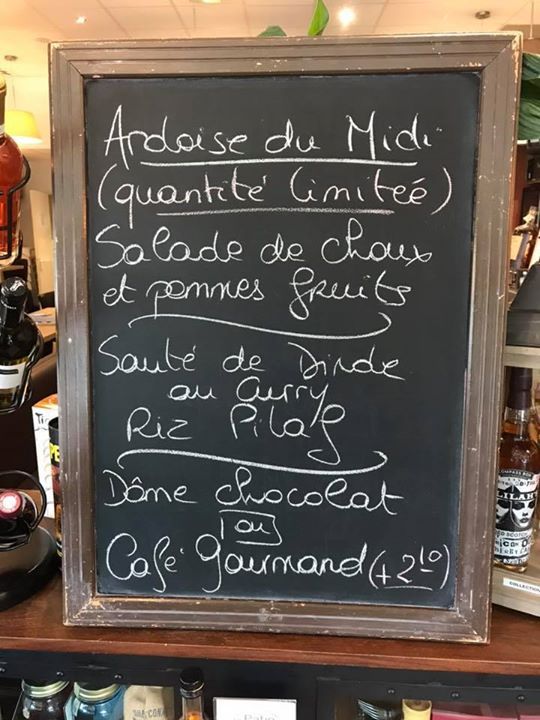 Ardoise du Midi
(quantité limiteé)
Salade de choux
et pommes fruits
Sauté de Dinde
au Curry
Riz Pilaf
Dôme chocolat
ou
Café gourmand (+2€)
LILAH
COLLECTION